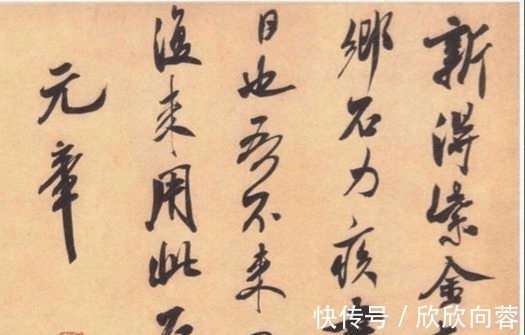 新得紫金
鄉石力疾
日也吾不来
復来用此石
元章
快传号 / 欣欣向蓉